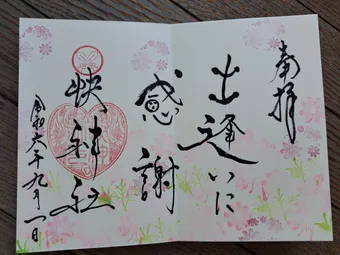 奉拝
出逢いに
感謝
神社
令和六年九月一日